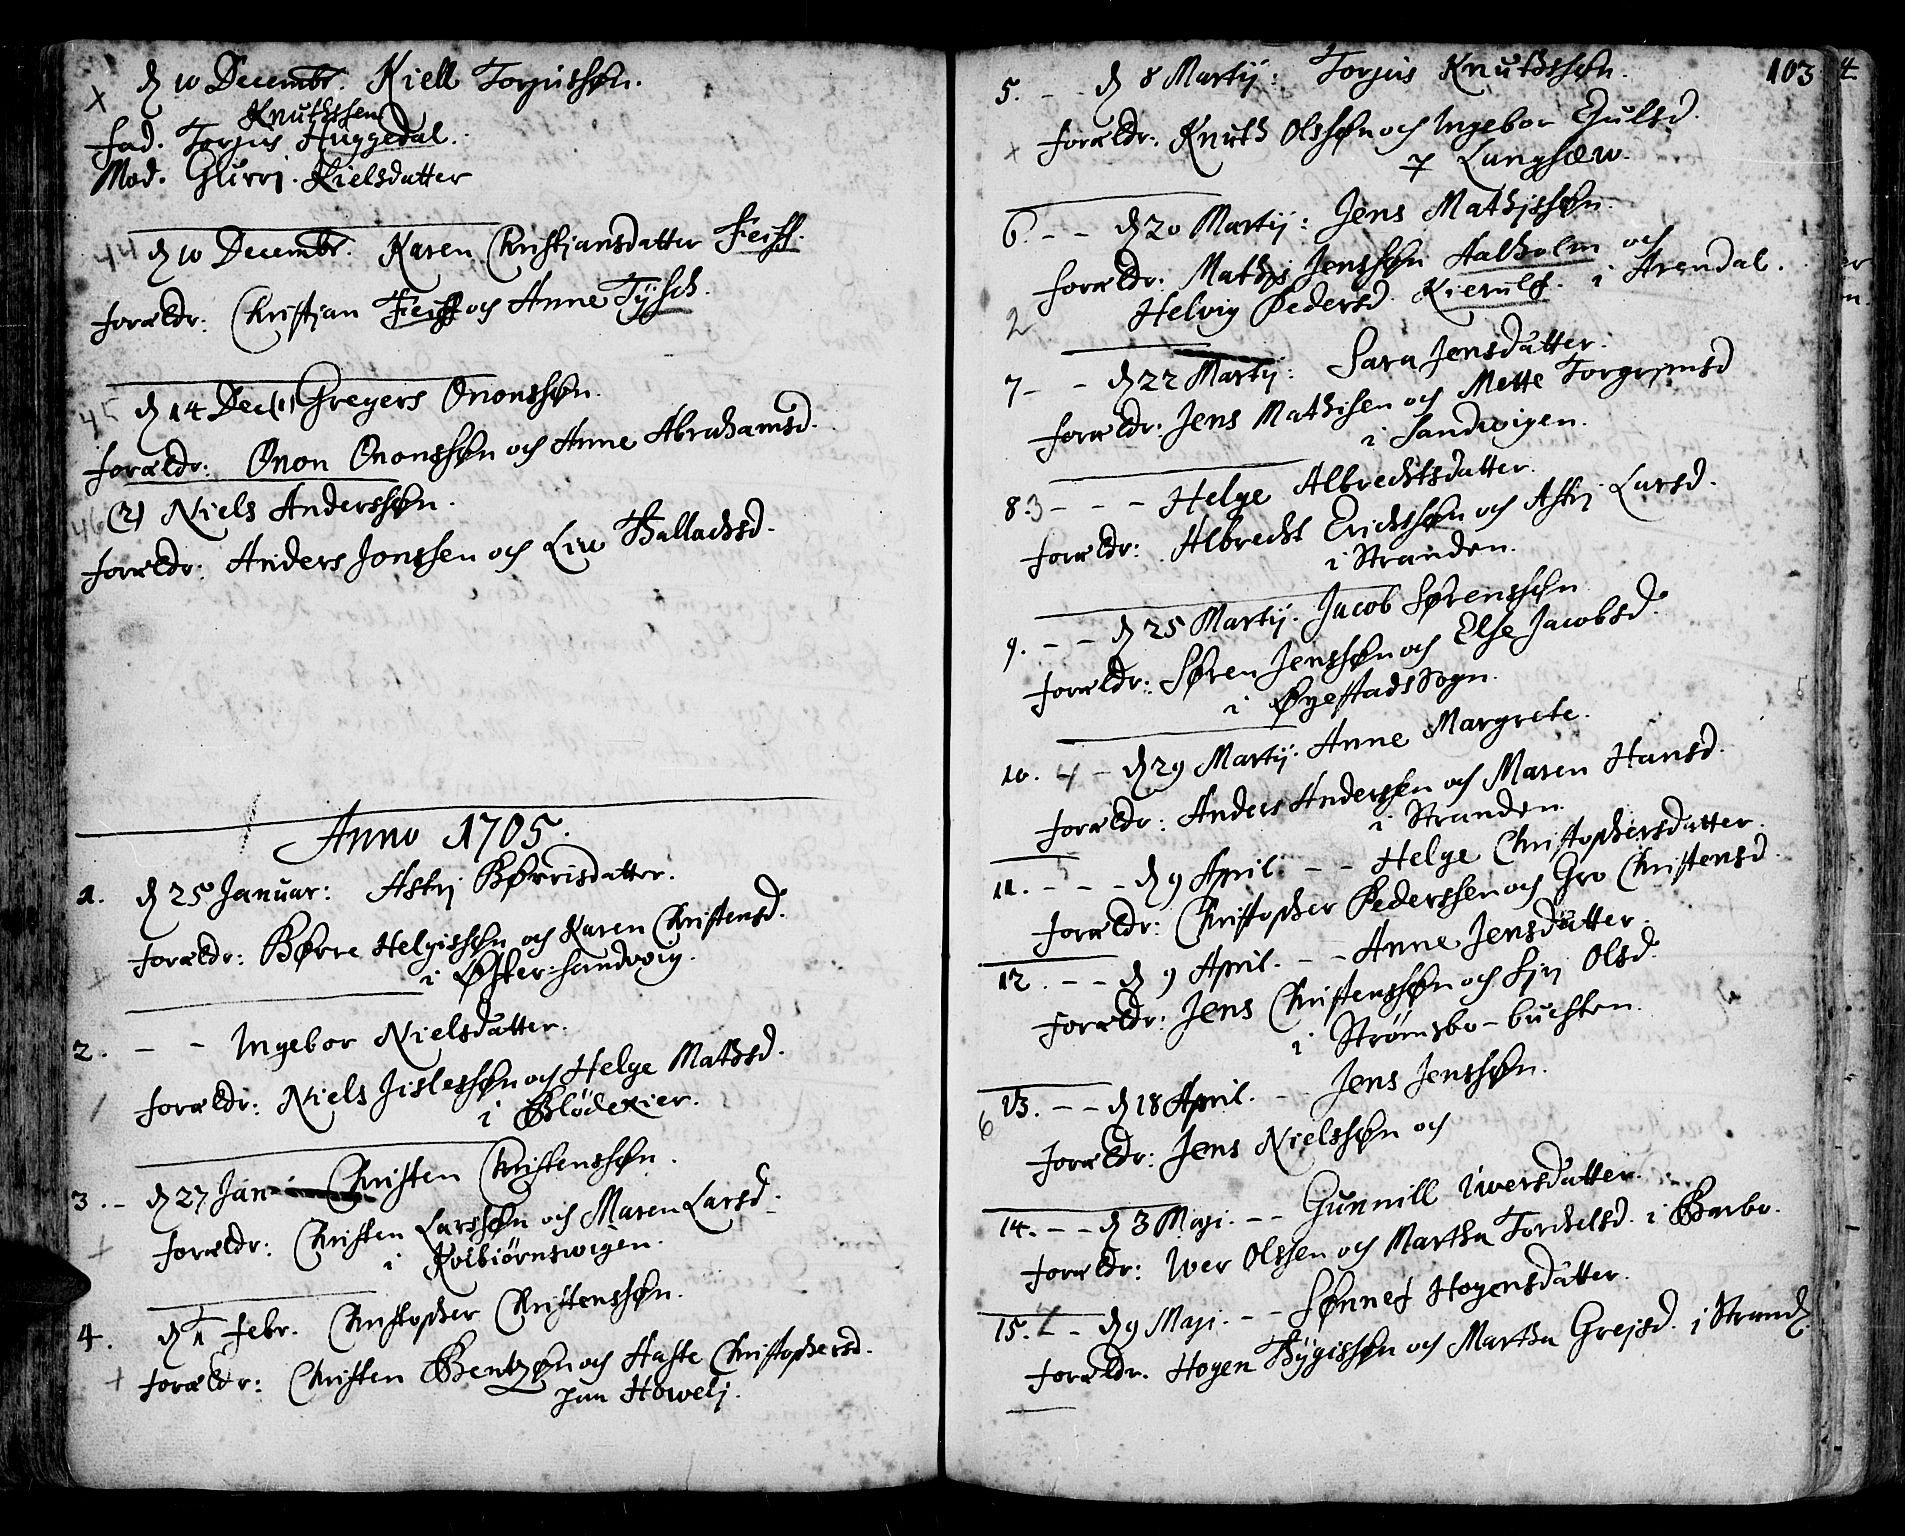 x d 10 Decembr. Kiell Torjussøn.
Knutssen
fad. Torjus Huggedal.
Mod. Gurrj. Kielsdatter
44 d 10 Decembr. Karen Christjansdatter Feiff.
forældr: Christjan Feiff och Anne Tÿsch.
45 d 14 Dec (1) Gregers Ononssøn.
forældr: Onon Ononssøn och Anne Abrahamsd.
46 (2) Niels Anderssøn.
forældr: Anders Jonssen och Liu Hallachsd.
Anno 1705.
1. d 25 Januar: Astrj Børrisdatter.
forældr: Børre Helgissøn och Karen Christensd.
i Øster-sandvvig.
2. - - Ingebor Nielsdatter.
forældr: Niels Jislessøn och Helge Mathsd.
i Blödekier.
3. - d 27 Jan Christen Christenssøn.
forældr: Christen Larssøn och Maren Larsd.
i Kolbiörnswigen.
4. d 1 febr. Christopher Christenssøn.
forældr: Christen Bentzøn och Aaste Christophersd.
paa Howelj.
103
5. - - d 8 Martij: Torjus Knutssøn.
x forældr: Knuth Olssøn och Ingebor Gulsd.
Langsæw.
6. - - d 20 Martij: Jens Mathjssøn.
forældr: Mathjs Jenssøn Aalholm och
2 Helvig Pedersd. Kierulf. i Arendal.
7 - - d 22 Martij: Sara Jensdatter.
forældr: Jens Mathisen och Mette Torgrimsd
i Sandwigen.
8. 3 - - - Helge Albrechtsdatter.
forældr: Albrecht Erichssøn och Astrj Larsd.
i Stranden.
9. - - d 25 Martij. Jacob Sørenssøn
forældr: Søren Jenssøn och Else Jacobsd.
i Øyestads Sogn.
10. 4 - d 29 Martij. Anne Margrete.
forældr: Anders Anderssen och Maren Hansd.
i Stranden.
11. - - - d 9 April. - - Helge Christophersdatter.
forældr: Christopher Pederssen och Gro Christensd.
12. - - d 9 April. - - Anne Jensdatter.
forældr: Jens Christenssøn och Sjrj Olsd.
i Strømsbo-buchten.
13. - - d 18 April. - Jens Jenssøn.
6 forældr: Jens Nielssøn och
14. - - d 3 Maji. - - Gunnill Iwersdatter.
forældr: Iwer Olssen och Martha Torchelsd. i Barbo.
15. - - d 9 Maji. - - Sønnef Hogensdatter.
forældr. Hogen Tÿgissøn och Martha Grejsd. i Strand.